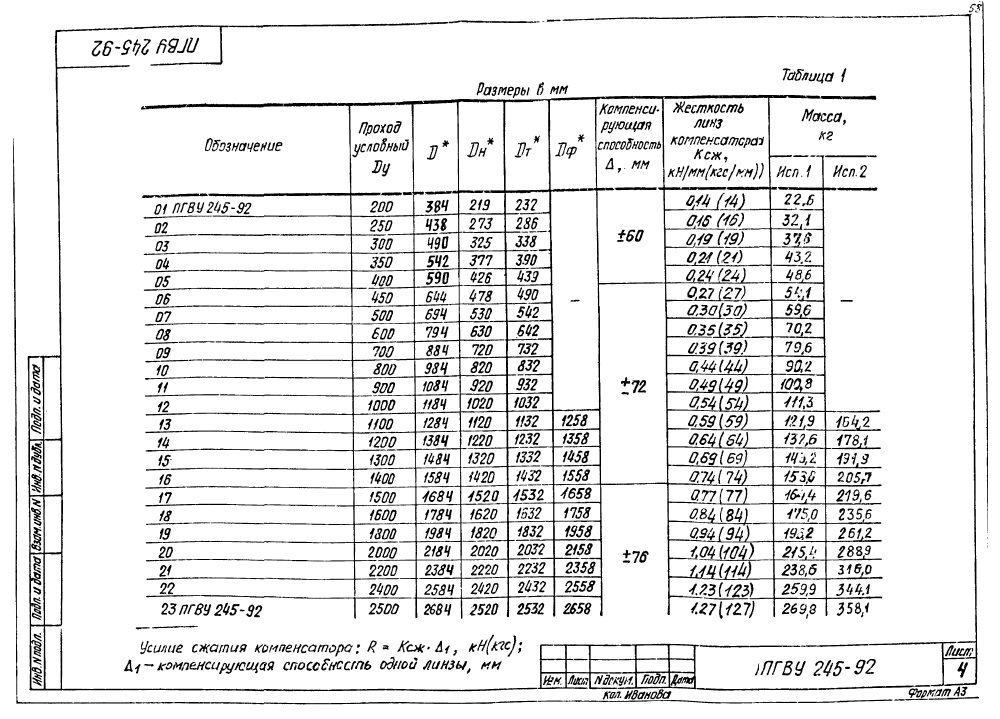 58
ПГВУ 245-92
Таблица 1
Размеры в мм
Обозначение | Проход условный Dу | D* | Dн* | Dт* | Dф* | Компенсирующая способность Δ, мм | Жесткость линз компенсатора Kсж, кН/мм(кгс/мм)) | Масса, кг Исп.1 | Исп.2
01 ПГВУ 245-92 200 384 219 232 – ±60 0,14 (14) 22,6 –
02 250 438 273 286 0,16 (16) 32,1
03 300 490 325 338 0,19 (19) 37,6
04 350 542 377 390 0,21 (21) 43,2
05 400 590 426 439 0,24 (24) 48,6
06 450 644 478 490 ±72 0,27 (27) 54,1
07 500 694 530 542 0,30 (30) 59,6
08 600 794 630 642 0,35 (35) 70,2
09 700 884 720 732 0,39 (39) 79,6
10 800 984 820 832 0,44 (44) 90,2
11 900 1084 920 932 0,49 (49) 100,8
12 1000 1184 1020 1032 0,54 (54) 111,3
13 1100 1284 1120 1132 1258 0,59 (59) 121,9 164,2
14 1200 1384 1220 1232 1358 0,64 (64) 132,6 178,1
15 1300 1484 1320 1332 1458 0,69 (69) 143,2 191,9
16 1400 1584 1420 1432 1558 0,74 (74) 153,6 205,7
17 1500 1684 1520 1532 1658 ±76 0,77 (77) 164,4 219,6
18 1600 1784 1620 1632 1758 0,84 (84) 175,0 235,6
19 1800 1984 1820 1832 1958 0,94 (94) 195,2 261,2
20 2000 2184 2020 2032 2158 1,04 (104) 215,4 288,9
21 2200 2384 2220 2232 2358 1,14 (114) 238,6 316,0
22 2400 2584 2420 2432 2558 1,23 (123) 259,9 344,1
23 ПГВУ 245-92 2500 2684 2520 2532 2658 1,27 (127) 269,8 358,1
Усилие сжатия компенсатора: R = Kсж·Δ1, кН(кгс);
Δ1 – компенсирующая способность одной линзы, мм
Инв. N подл. Подп. и дата Взам. инв. N Инв. N дубл. Подп. и дата
Изм. Лист N докум. Подп. Дата
ПГВУ 245-92
Лист
4
Кол. Иванова
Формат А3